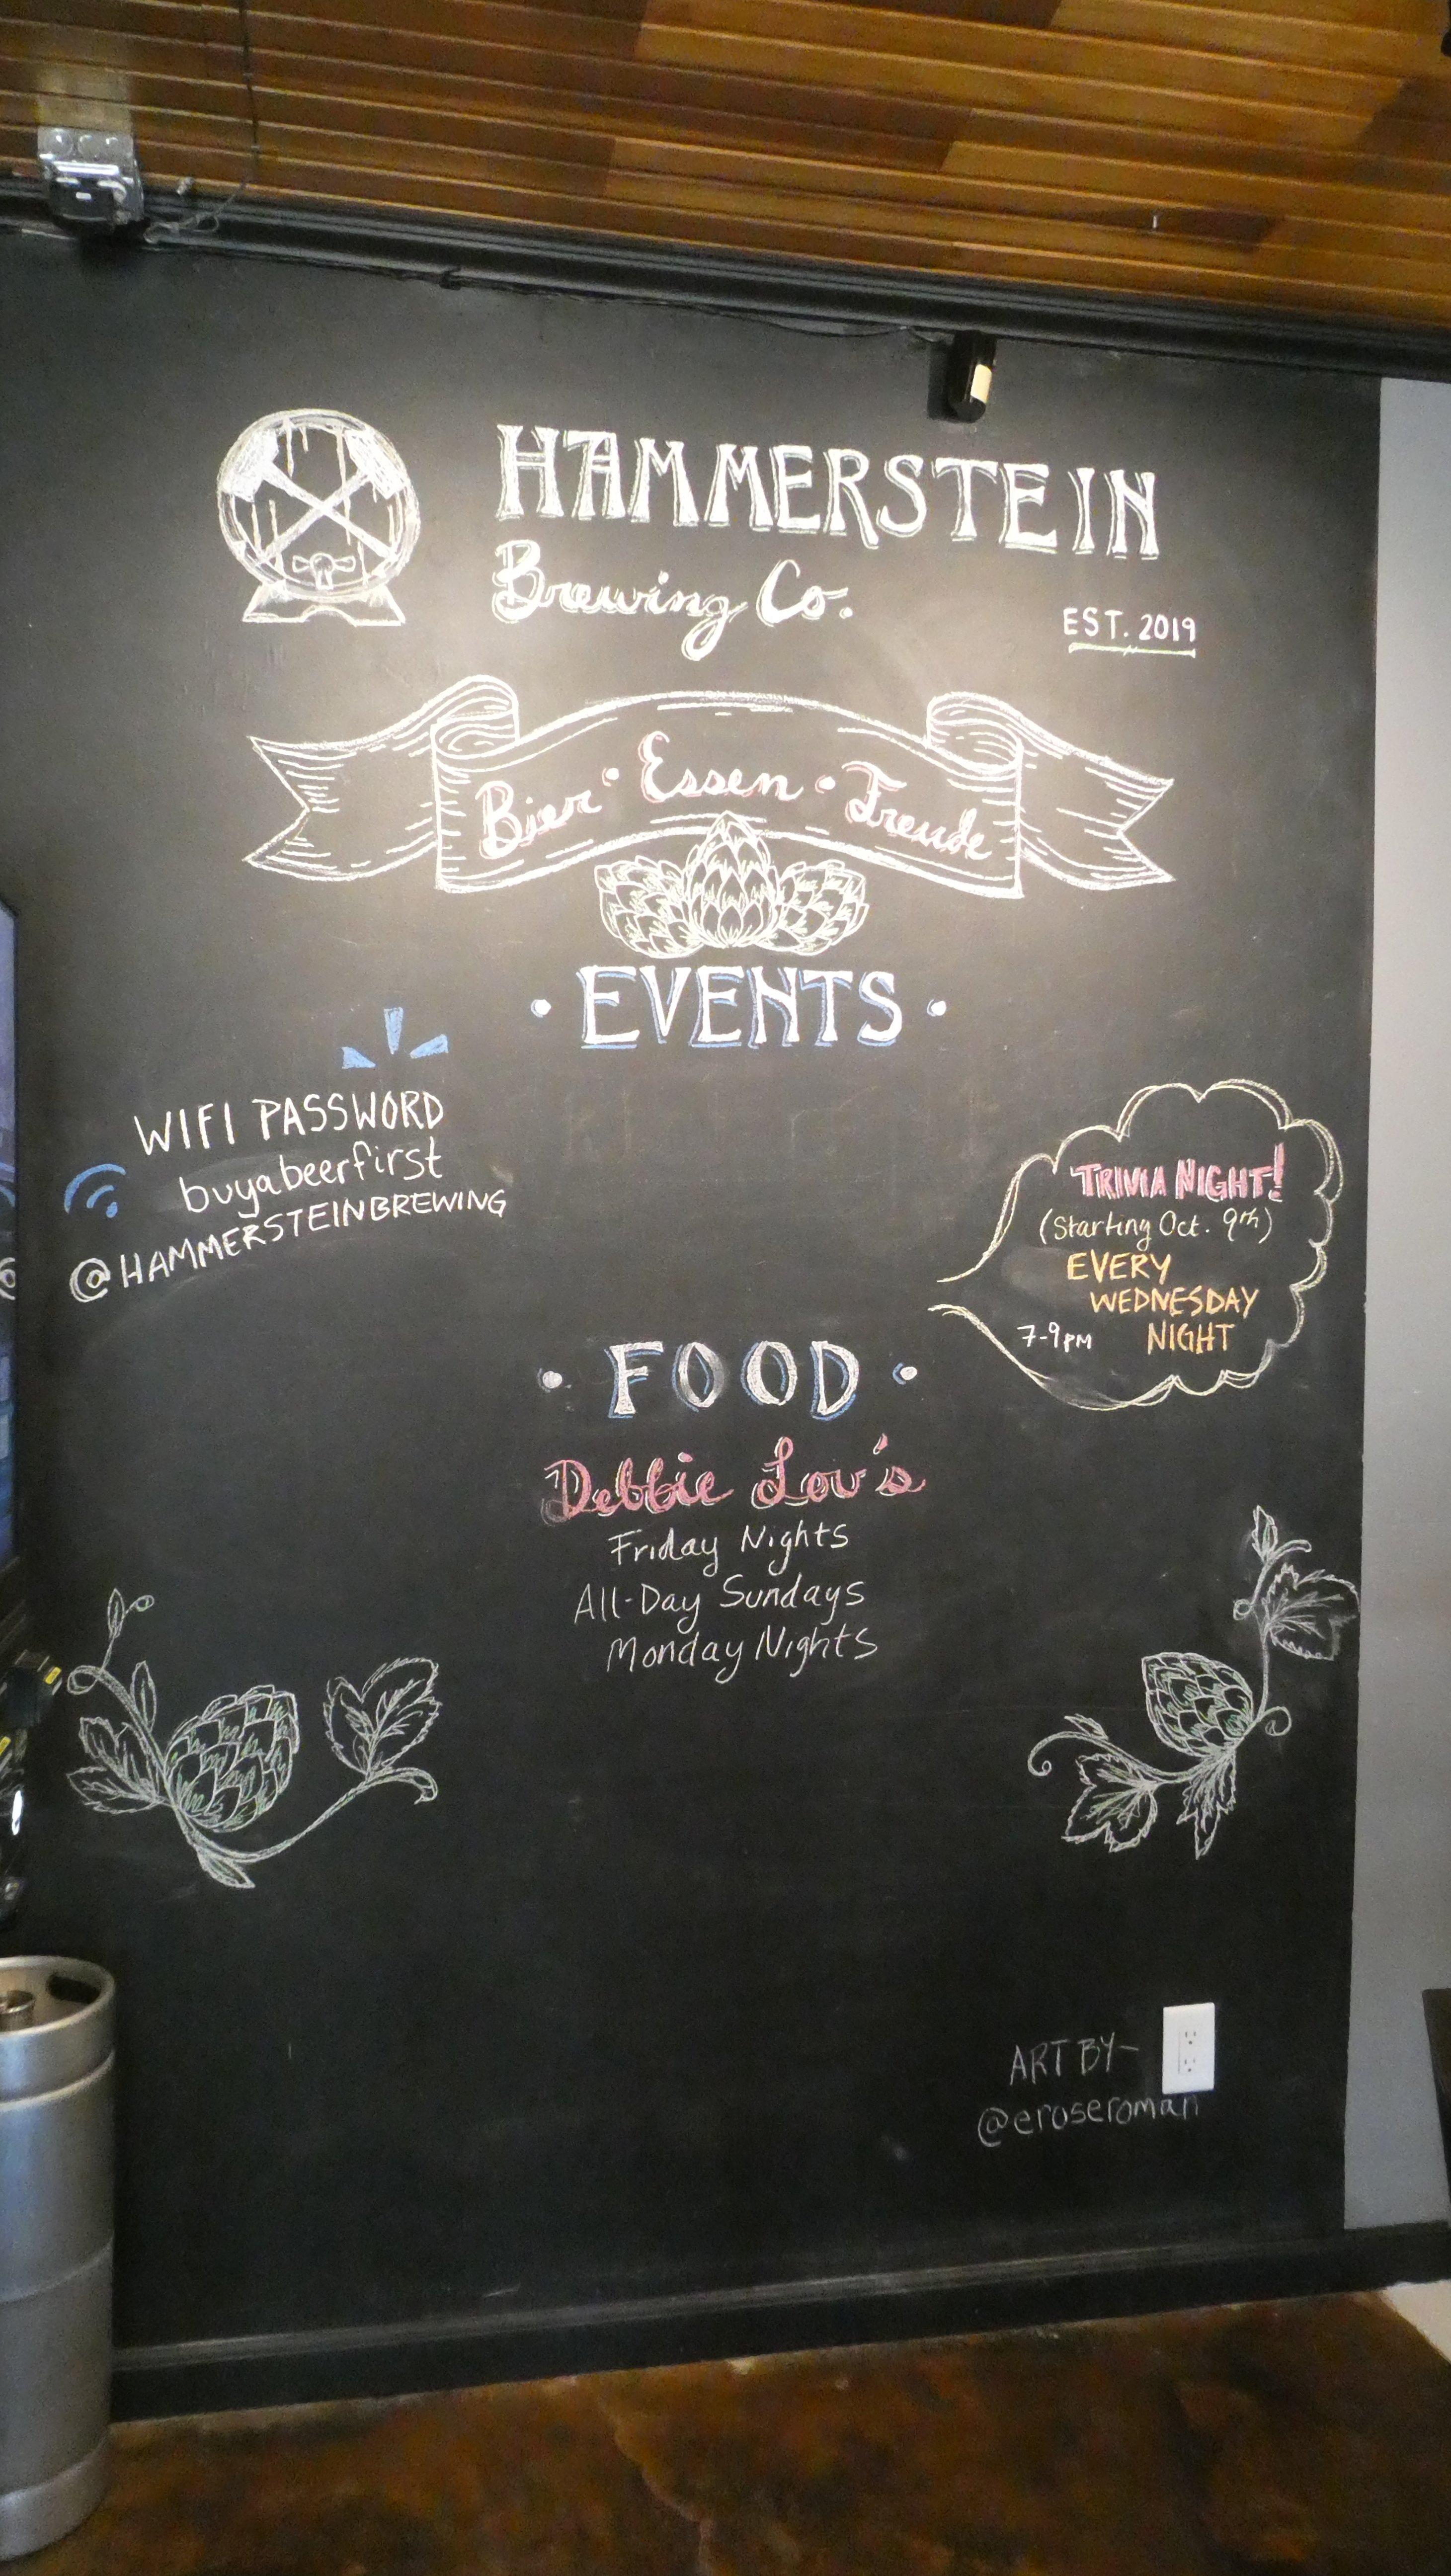 HAMMERSTEIN
Brewing Co.
EST. 2019
Bier · Essen · Freude
· EVENTS ·
WIFI PASSWORD
buyabeerfirst
@HAMMERSTEINBREWING
TRIVIA NIGHT!
(Starting Oct. 9th)
EVERY
WEDNESDAY
7-9PM NIGHT
· FOOD ·
Debbie Lou's
Friday Nights
All-Day Sundays
Monday Nights
ART BY-
@eroseroman